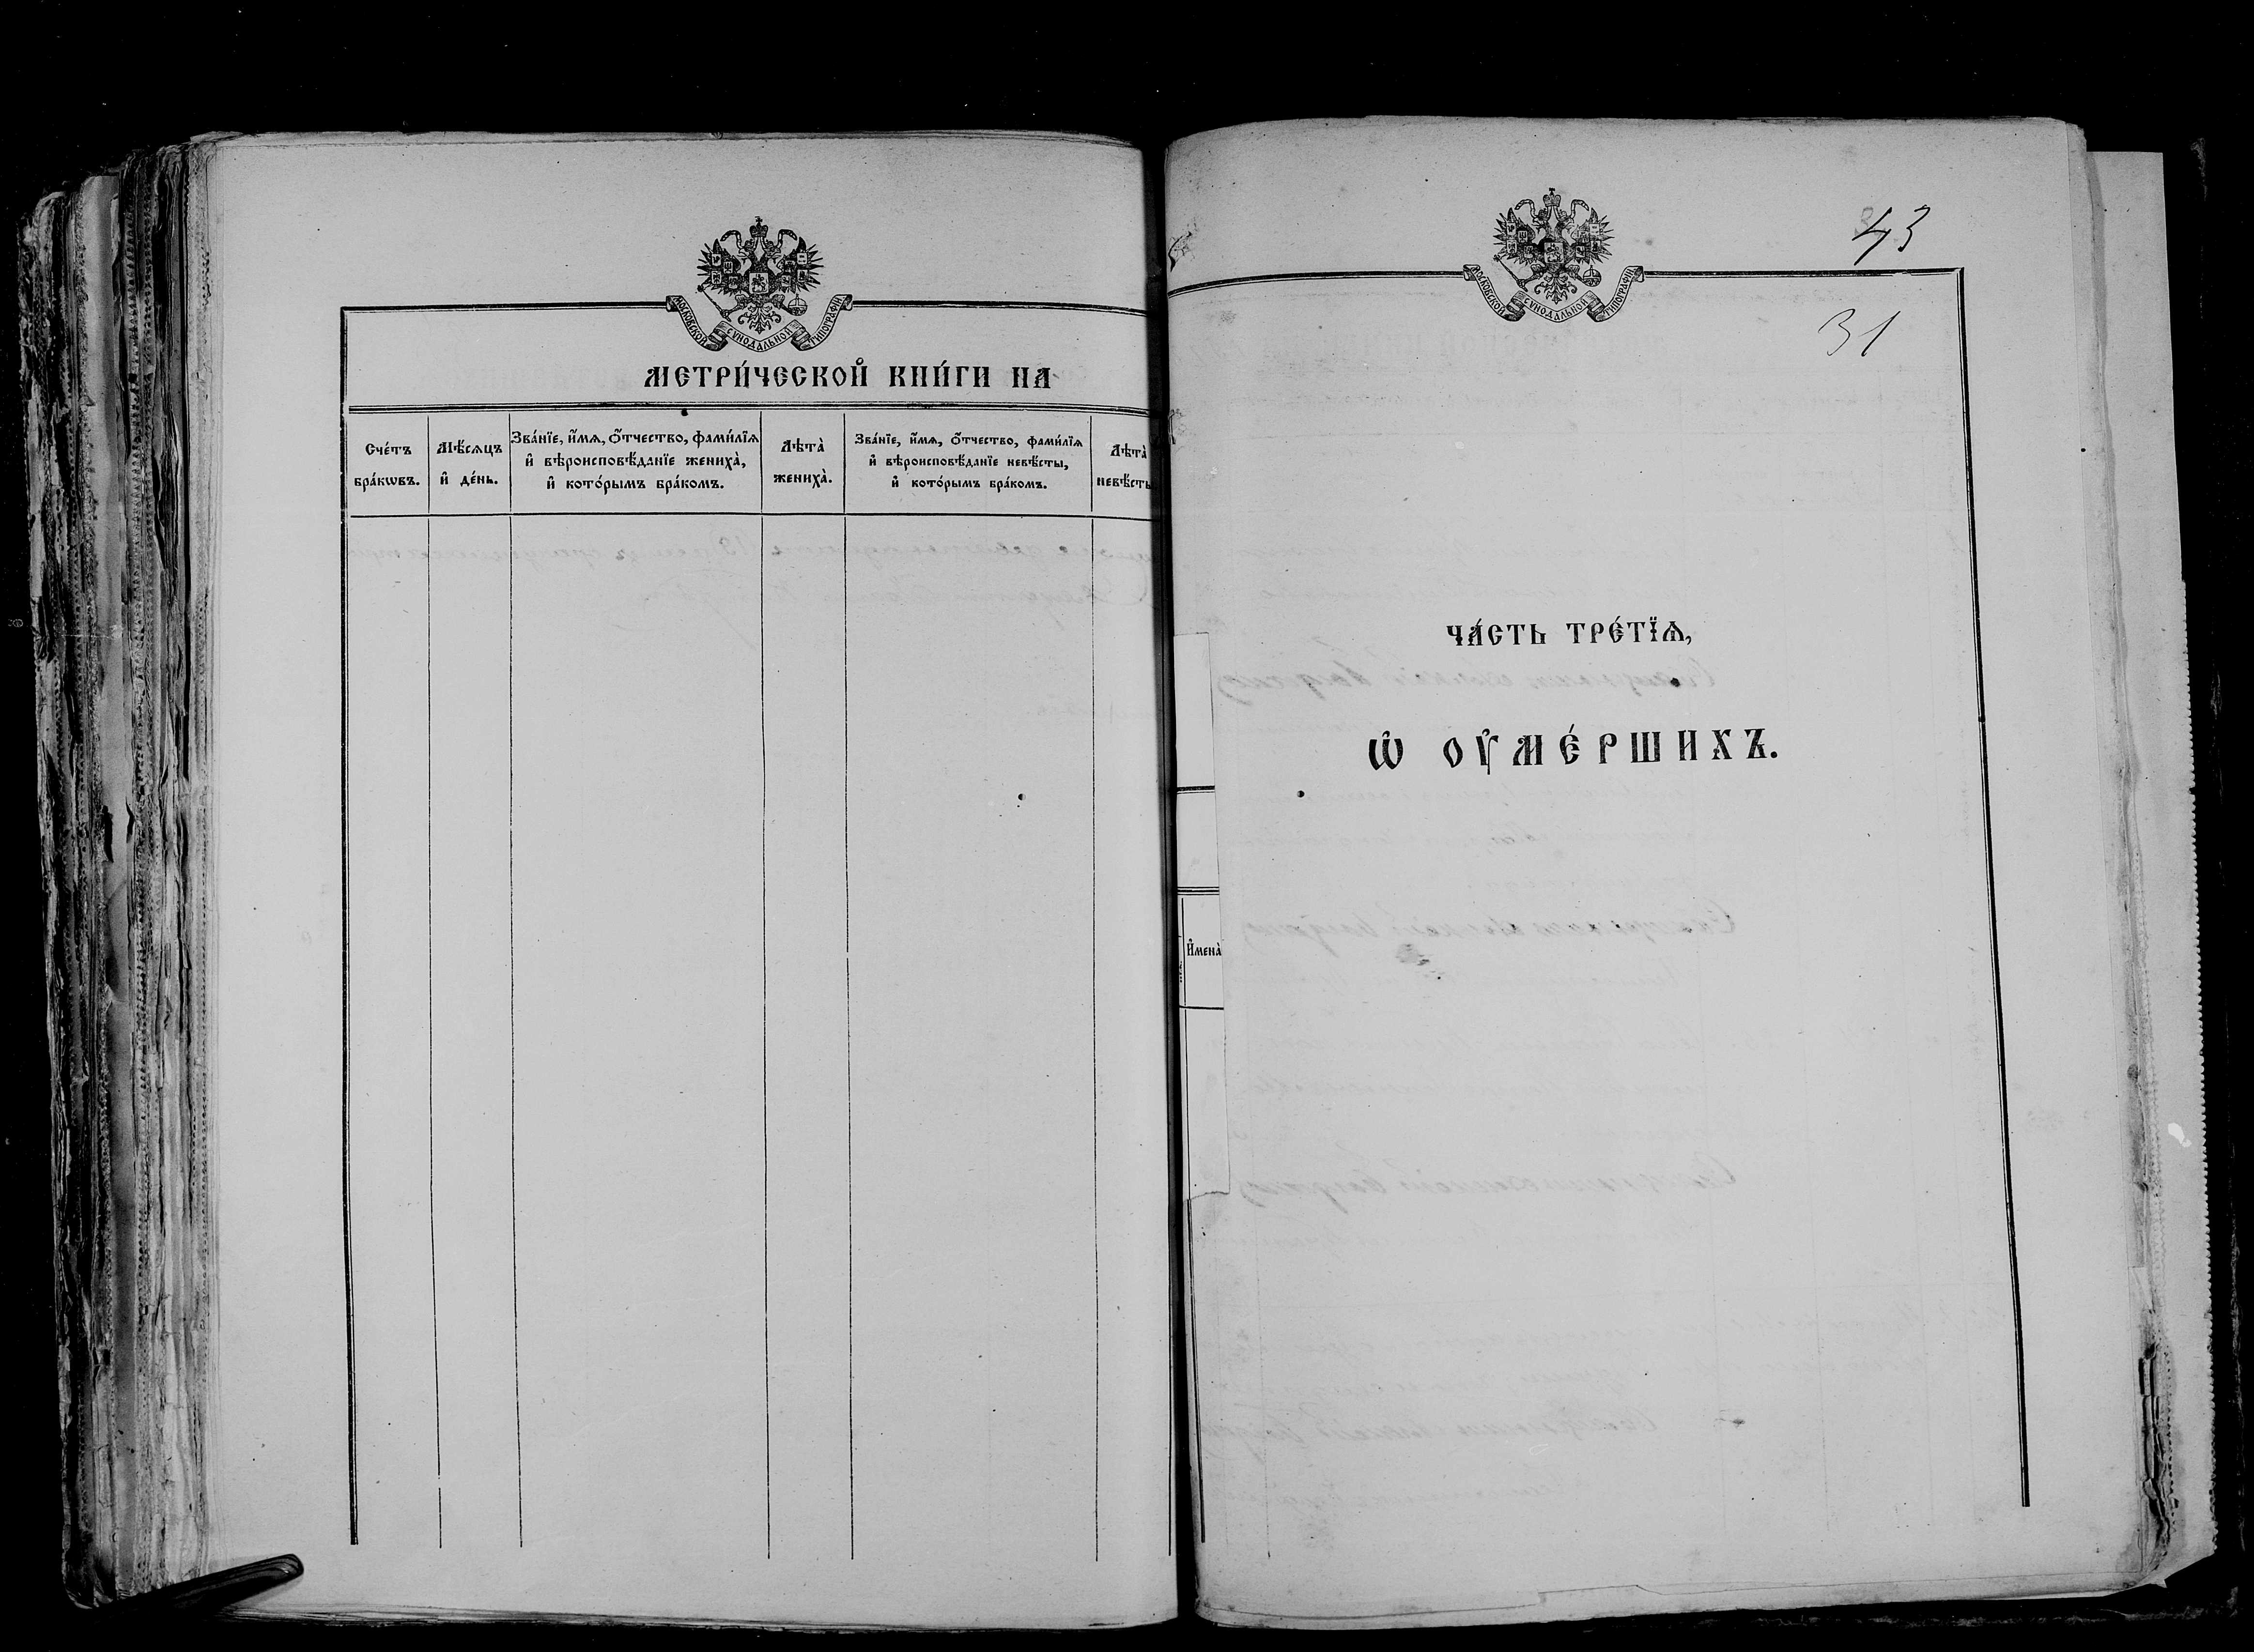 МОСКОВСКОЙ СѴНОДАЛЬНОЙ ТИПОГРАФІИ
МЕТРИ́ЧЕСКОЙ КНИ́ГИ НА
Сче́тъ бра́кѡвъ.
Мѣ́сѧцъ и҆ де́нь.
Зва́нїе, и҆́мѧ, ѻ҆́тчество, фами́лїѧ
и҆ вѣроисповѣ́данїе жениха̀,
и҆ кото́рымъ бра́комъ.
Лѣта̀ жениха̀.
Зва́нїе, и҆́мѧ, ѻ҆́тчество, фами́лїѧ
и҆ вѣроисповѣ́данїе невѣ́сты,
и҆ кото́рымъ бра́комъ.
Лѣта̀ невѣ́сты
МОСКОВСКОЙ СѴНОДАЛЬНОЙ ТИПОГРАФІИ
43
31
ЧА́СТЬ ТРЕ́ТЇѦ,
Ѡ҆ ОУ҆МЕ́РШИХЪ.
И҆мена̀